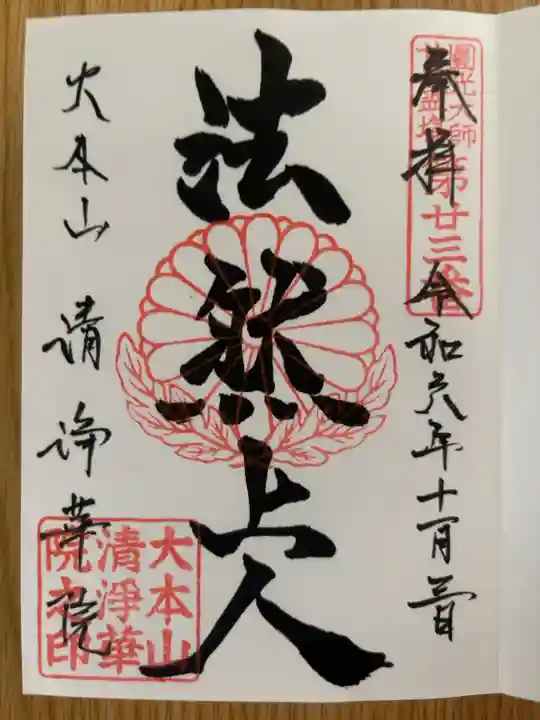 奉拝 令和六年十一月三日
圓光大師
廿五霊場
第廿三番
法然上人
大本山 清浄華院
大本山
清淨華
院之印